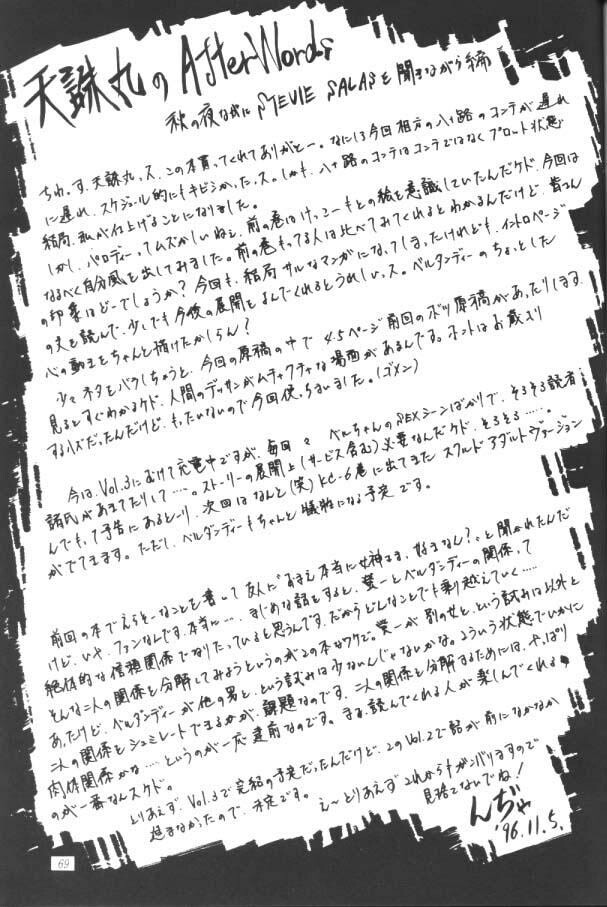 天誅丸の After Words
秋の夜ながに STEVIE SALASを聞きながら編
ちわ。す、天誅丸ッス、この本買ってくれてありがとー。なにげに今回相方の八十路のコンテが遅れ
に遅れ、スケジュール的にもキビシかったッス。しかも、八十路のコンテはコンテではなくプロット状態
結局、私が仕上げることになりました。
しかし、パロディーってムズかしいねぇ、前の巻はけっこーもとの絵を意識していたんだケド、今回は
なるべく自分風を出してみました。前の巻もってる人は比べてみてくれるとわかるんだけど、皆さん
の印象はどーでしょうか?今回も、結局サルなマンガになってしまったけれども、イントロページ
の文を読んで、少しでも今後の展開をよんでくれるとうれしいッス。ベルダンディーのちょっとした
心の動きをちゃんと描けたかしらん?
少々ネタをバラしちゃうと、今回の原稿の中で4.5ページ前回のボツ原稿があったりします。
見るとすぐわかるケド、人間のデッサンがムチャクチャな場面があるんです。ホントはお蔵入り
するハズだったんだけど、もったいないので今回使っちまいました。(ゴメン)
今は、Vol.3にむけて充電中ですが、毎回々 ベルちゃんのSEXシーンばかりで、そろそろ読者
諸氏があきてたりして…。ストーリーの展開上(サービス含む)必要なんだケド、そろそろ……。
んでもって予告にあるとーり、次回はなんと(笑)KC-6巻に出てきた スクルドアダルトヴァージョン
がでてきます。ただし、ベルダンディーもちゃんと犠牲になる予定です。
前回の本でえらそーなことを書いて友人に"おまえ本当に女神さま、好きなん?"と聞かれたんだ
けど、いや、ファンなんです。本当に…。まじめな話をすると、螢一とベルダンディーの関係って
絶体的な信頼関係でなりたっていると思うんです。だからどんなことでも乗り越えていく……
そんな二人の関係を分解してみようというのがこの本なワケで。螢一が別の女と、という試みは以外と
あったけど、ベルダンディーが他の男と、という試みは少ないんじゃないかな。こういう状態でいかに
二人の関係をシュミレートできるかが、課題なのです。二人の関係を分解するためには、やっぱり
肉体関係かな……というのが一応建前なのです。まあ、読んでくれる人が楽しんでくれる
のが一番なんスケド。
とりあえず、Vol.3で完結の予定だったんだけど、このVol.2で話が前になかなか
進まなかったので、未定です。
え〜とりあえずこれからもガンバリますので
見捨てないでね!
んぢゃ
'96.11.5.
69